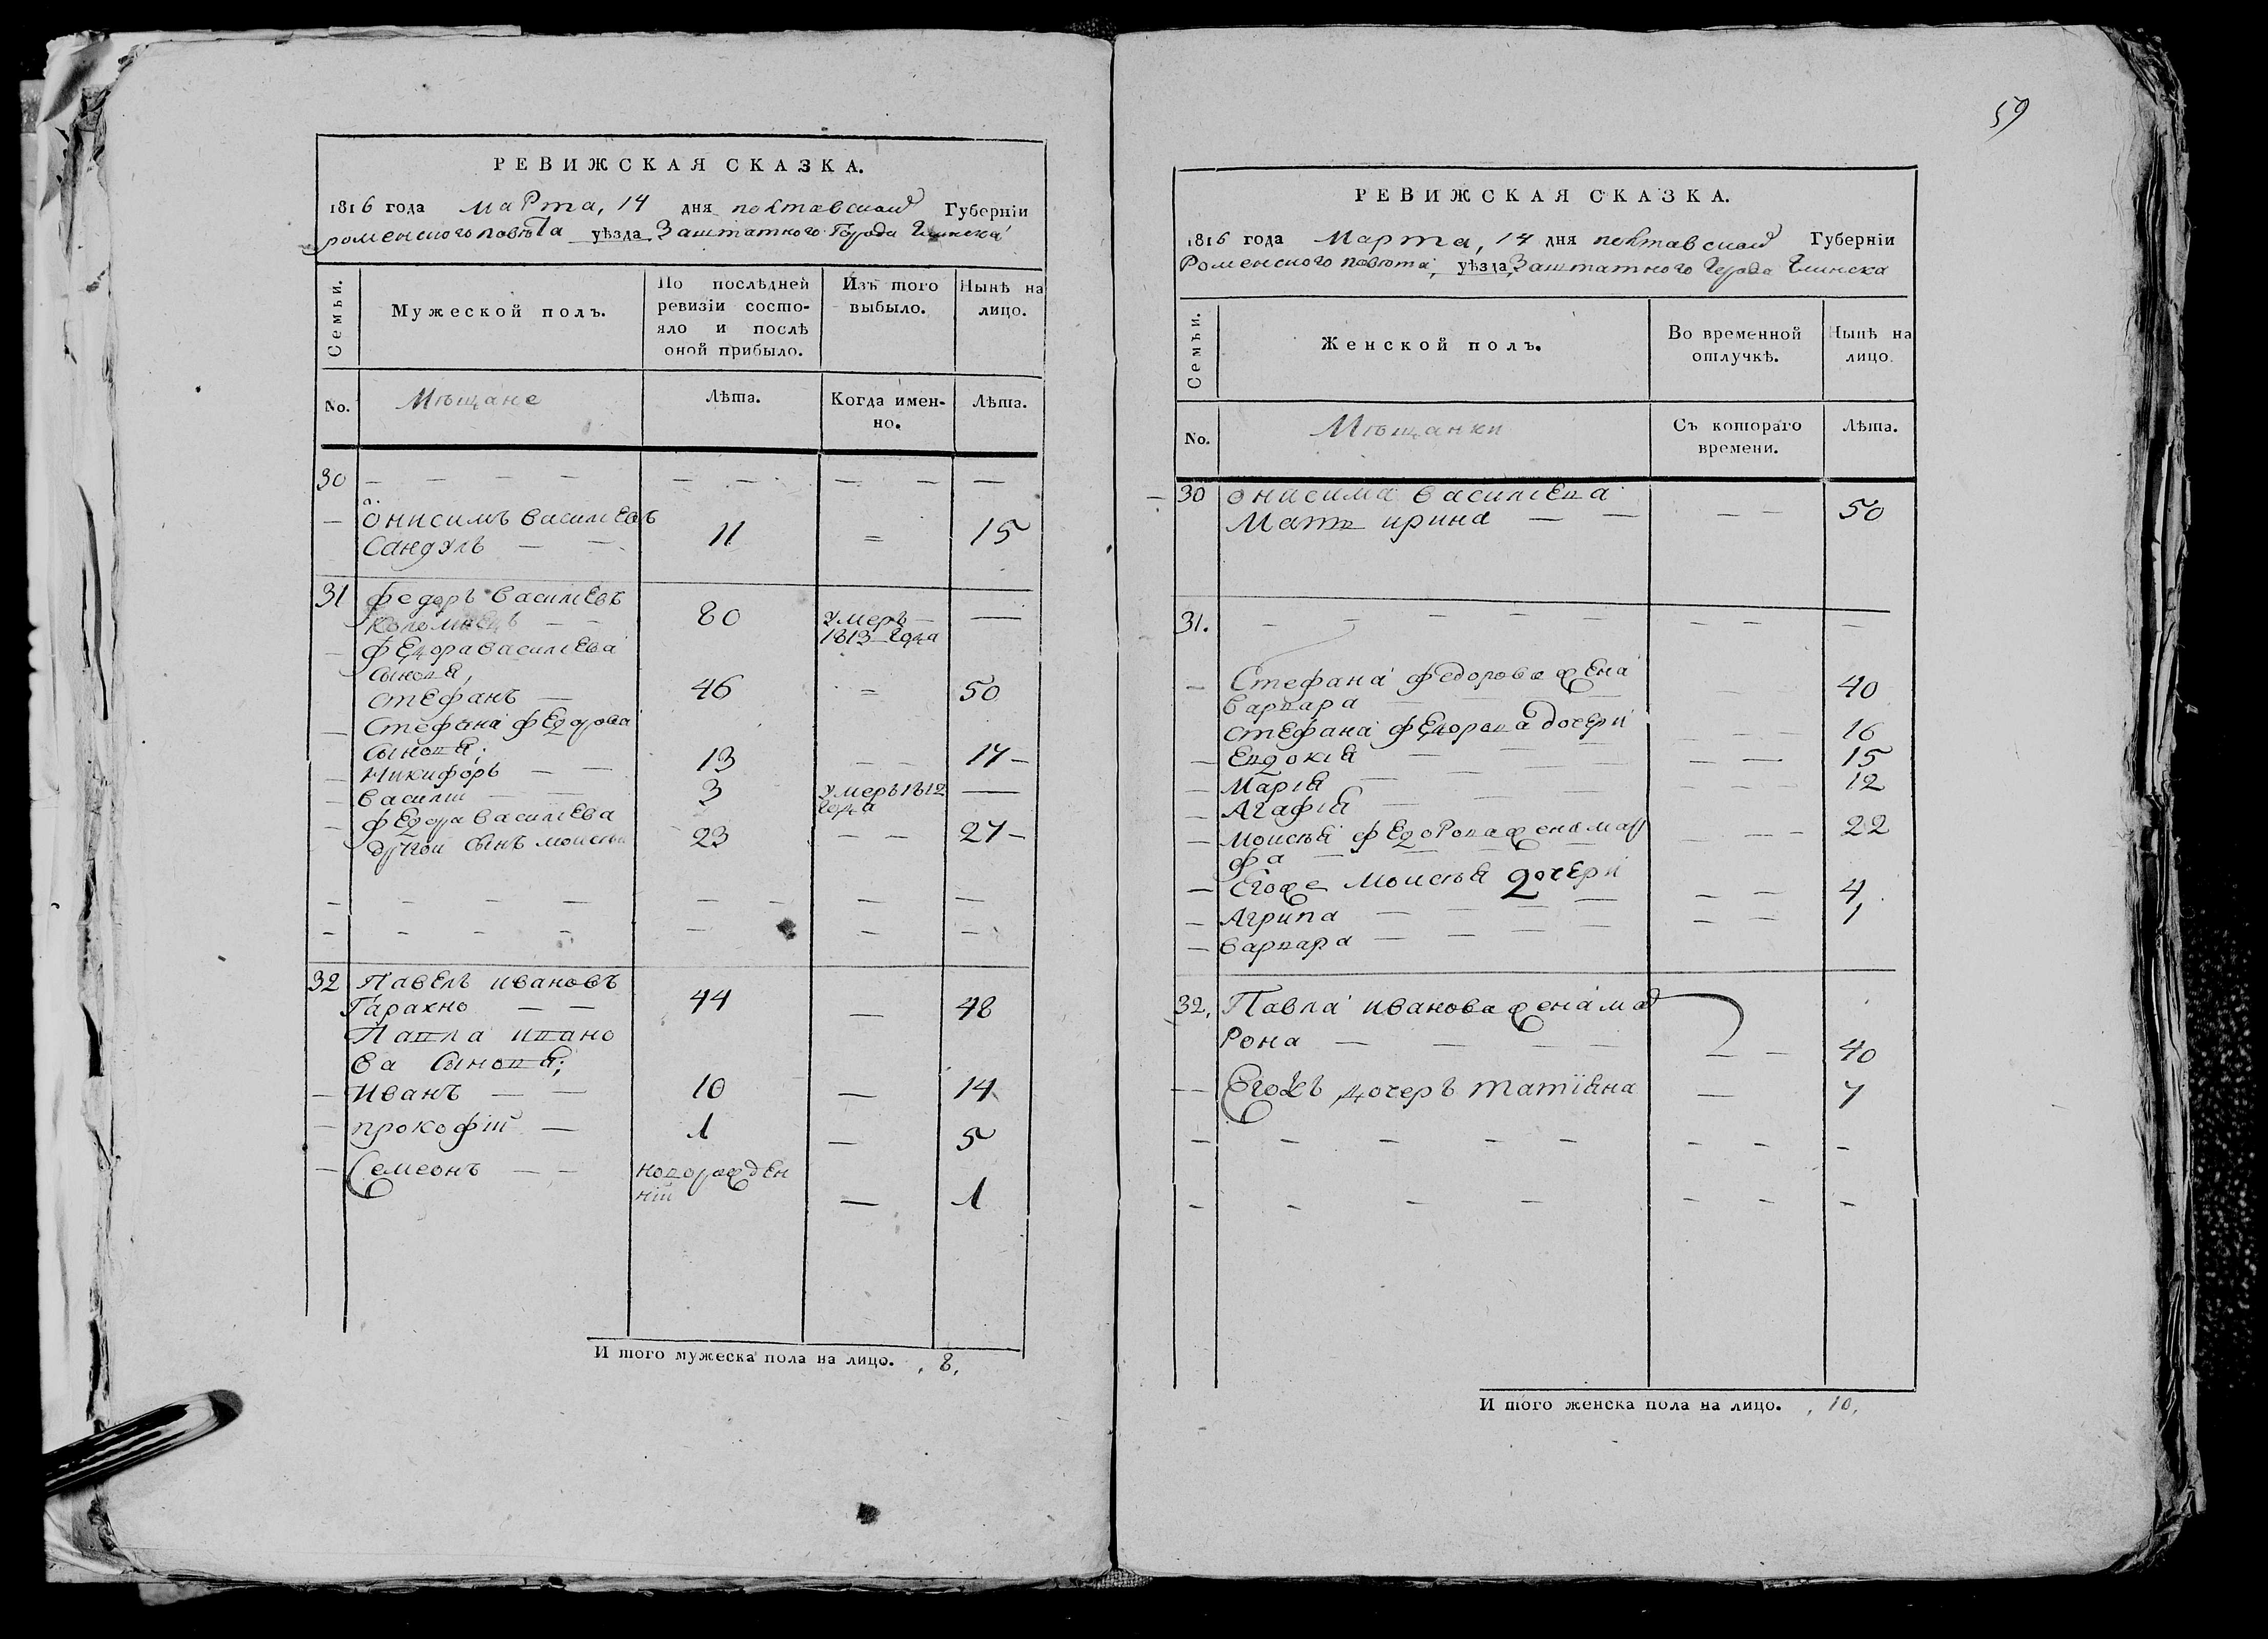 59
РЕВИЖСКАЯ СКАЗКА.
1816 года Марта, 14 дня полтавской Губернїи
роменского повѣта уѣзда Заштатного Города Глинска
Семьи.
Мужеской полъ.
По послѣдней ревизїи состо-
яло и послѣ
оной прибыло.
Изъ того
выбыло.
Нынѣ на
лицо.
No.
Мѣщане
Лѣта.
Когда имен-
но.
Лѣта.
30 — — — — — — — — —
— онисимъ василıевъ
Сандулъ — — 11 = 15
31 федоръ василıевъ
— — 80 умеръ — —
1813 года
— федора василıева
сыновя,
стефанъ — 46 = 50
— Стефана федорова
сыновя;
— Никифоръ — — 13 — — 17 —
— василıй — — 3 умеръ 1812 —
года
— федора василıева
другой сынъ моисей 23 — — 27 —
— — — — — — — —
— — — — — — —
32 Павелъ ивановъ
Гарахно — — 44 — 48
Павла ивано
ва сыновя;
— Иванъ — — 10 — 14
— прокофıй — 1 — 5
— Семеонъ — — новорожден
нıй — 1
И того мужеска пола на лицо. 8.
РЕВИЖСКАЯ СКАЗКА.
1816 года Марта, 14 дня полтавской Губернїи
Роменского повѣта, уѣзда, Заштатного Города Глинска
Семьи.
Женской полъ.
Во временной
отлучкѣ.
Нынѣ на
лицо.
No.
Мѣщанки
Съ котораго
времени.
Лѣта.
— 30 онисима василıева
Мать ирина — — — — 50
31. — — — — — — —
— Стефана федорова жена
варвара — — — — 40
стефана федорова дочери
— Евдокıя — — — — — 16
— Марıя — — — — — 15
— Агафıя — — 12
— Моисѣя федорова жена мар
фа — — — — 22
— Егоже Моисѣя дочери
— Агрипа — — — — — — 4
— варвара — — — — — — 1
32, Павла иванова жена мат
рона — — — — — — 40
— Егожъ дочеръ татїяна — 7
— — — — — — — —
— — — — — — —
И того женска пола на лицо. 10.